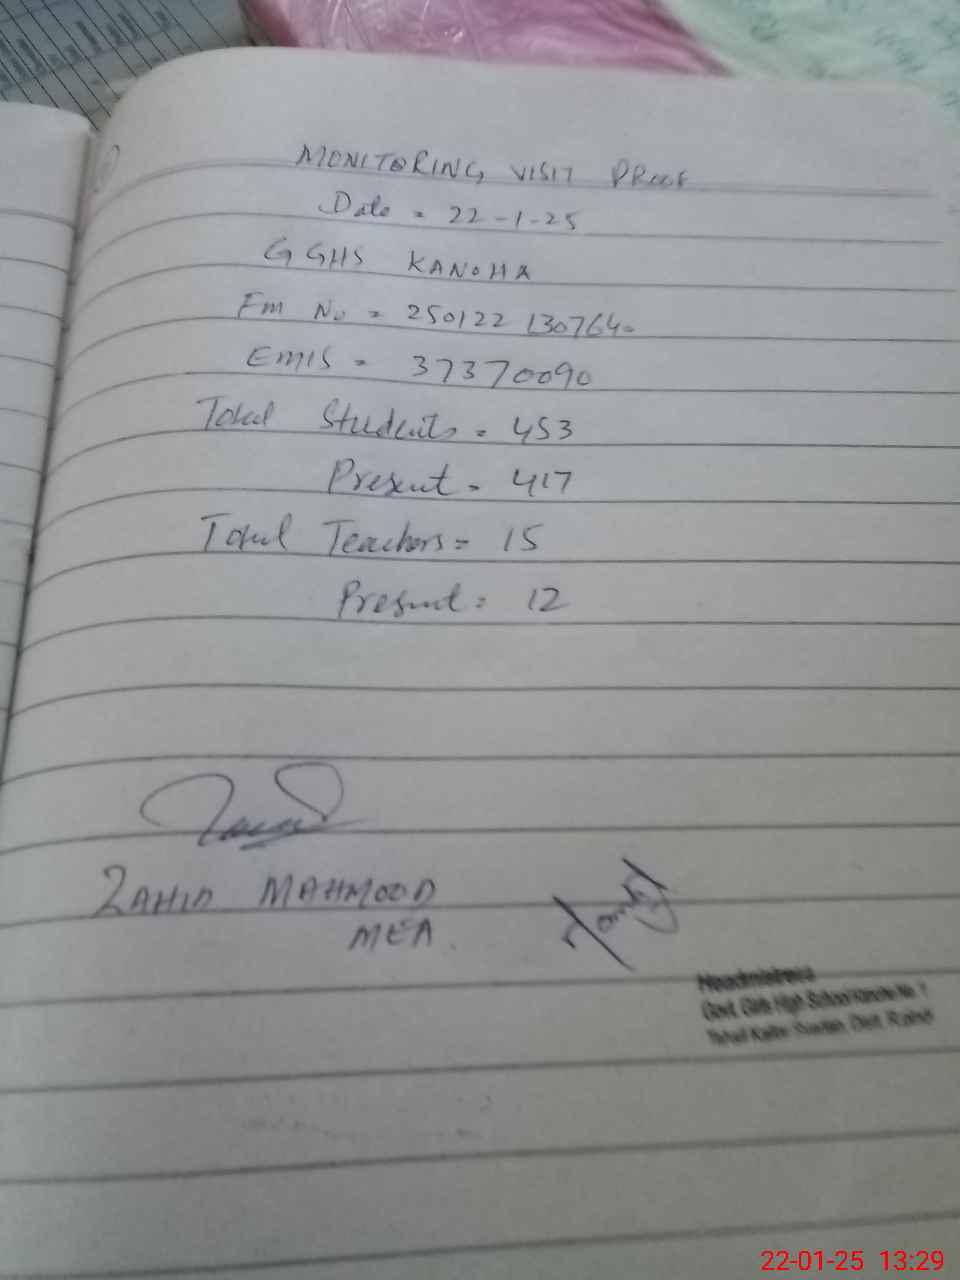 MONITORING VISIT PROOF
Date = 22-1-25
GGHS KANOHA
Fm No = 250122130764
EMIS = 37370090
Total Students = 453
Present = 417
Total Teachers = 15
Present = 12
ZAHID MAHMOOD
MEA
Headmistress
Govt. Girls High School Kanoha No. 1
Tehsil Kallar Syedan, Distt. R.pindi
22-01-25 13:29